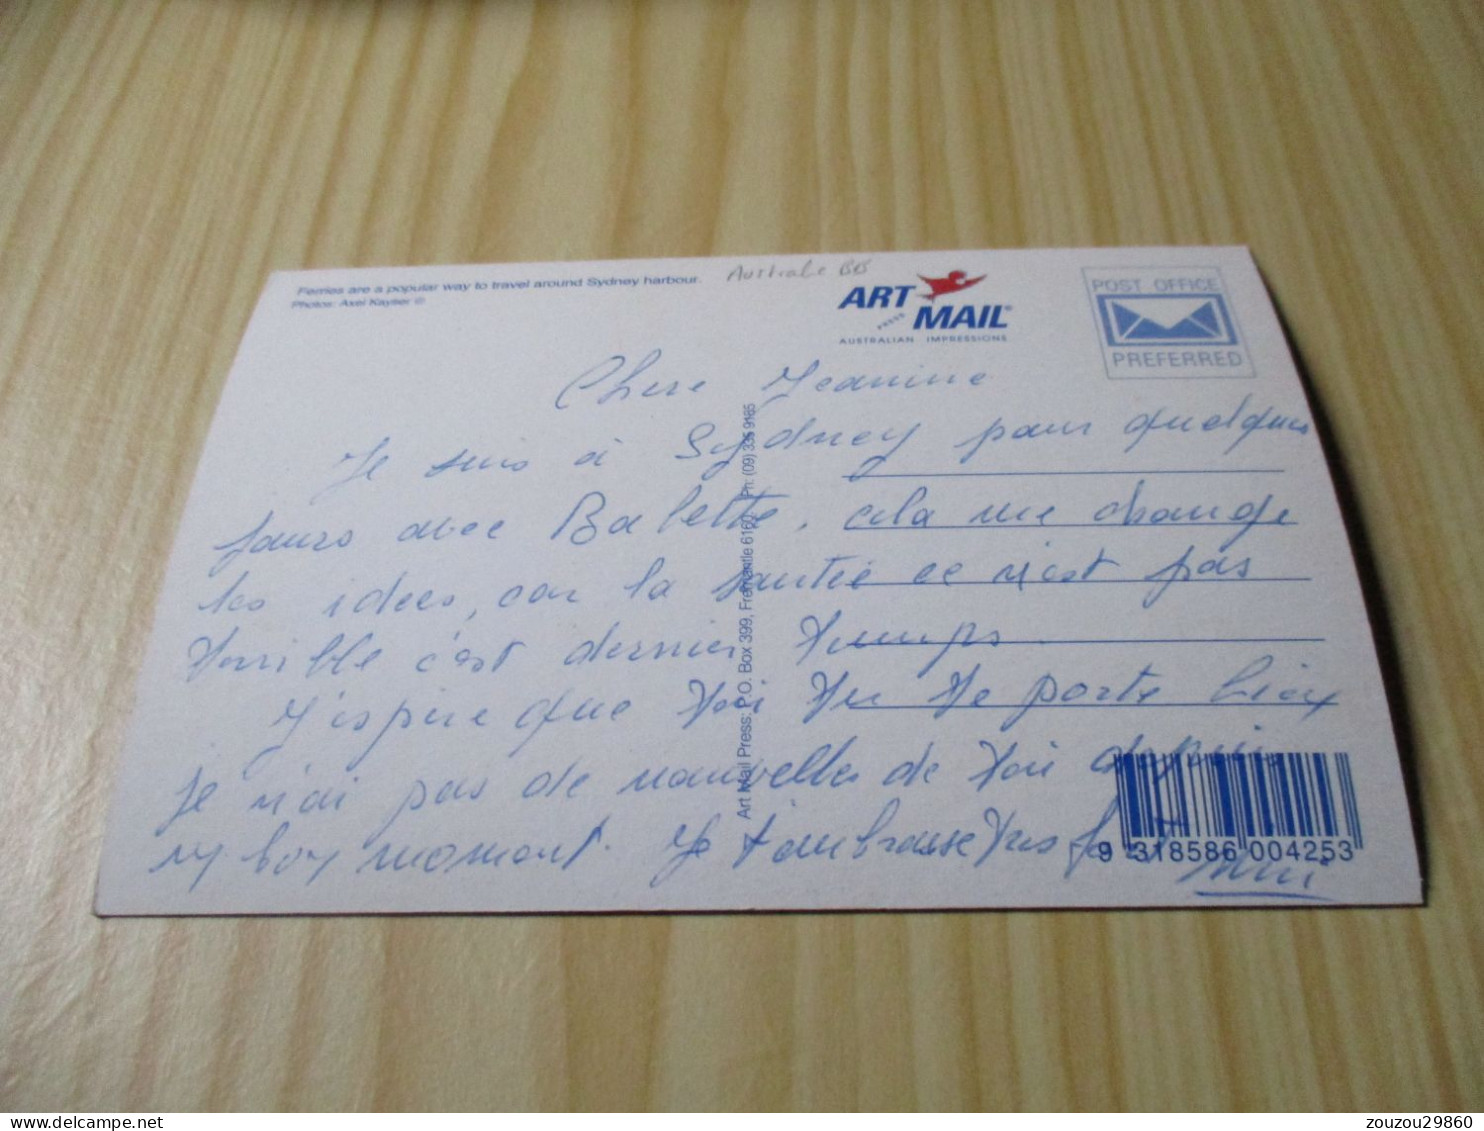 Ferries are a popular way to travel around Sydney harbour.
Photos: Axel Kayser ©
Australie BB
ART
PRESS
MAIL
AUSTRALIAN IMPRESSIONS
POST OFFICE
PREFERRED
Chere Jeanine
Je suis à Sydney pour quelques
jours avec Babette, cela me change
les idées, car la santée ce n'est pas
terrible c'est dernier temps.
J'espère que toi tu te porte bien
je n'ai pas de nouvelles de toi depuis
un bon moment. Je t'embrasse tres fort
Art Mail Press: P.O. Box 399, Fremantle 6160 Ph: (09) 335 9185
9 318586 004253
zouzou29860